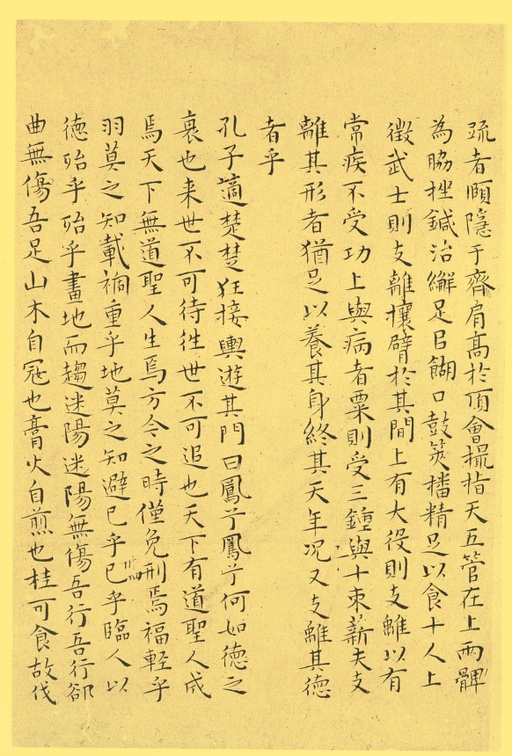 疏者頤隱于齊肩髙於頂會撮指天五管在上兩髀
為脇挫鍼治繲足㠯餬口鼓筴播精足以食十人上
徵武士則支離攘臂於其間上有大役則支離以有
常疾不受功上與病者粟則受三鍾與十束薪夫支
離其形者猶足以養其身終其天年况又支離其德
者乎
孔子適楚楚狂接輿遊其門曰鳳兮鳳兮何如德之
衰也来世不可待往世不可追也天下有道聖人成
焉天下無道聖人生焉方今之時僅免刑焉福輕乎
羽莫之知載禍重乎地莫之知避已乎已乎臨人以
德殆乎殆乎畫地而趨迷陽迷陽無傷吾行吾行郤
曲無傷吾足山木自寇也膏火自煎也桂可食故伐